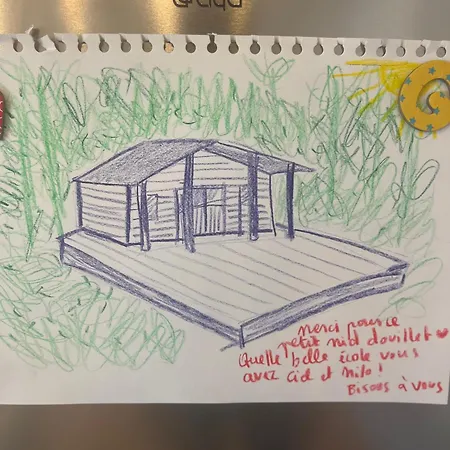 merci pour ce
petit nid douillet
Quelle belle école vous
avez Cid et Milo !
Bisous à vous